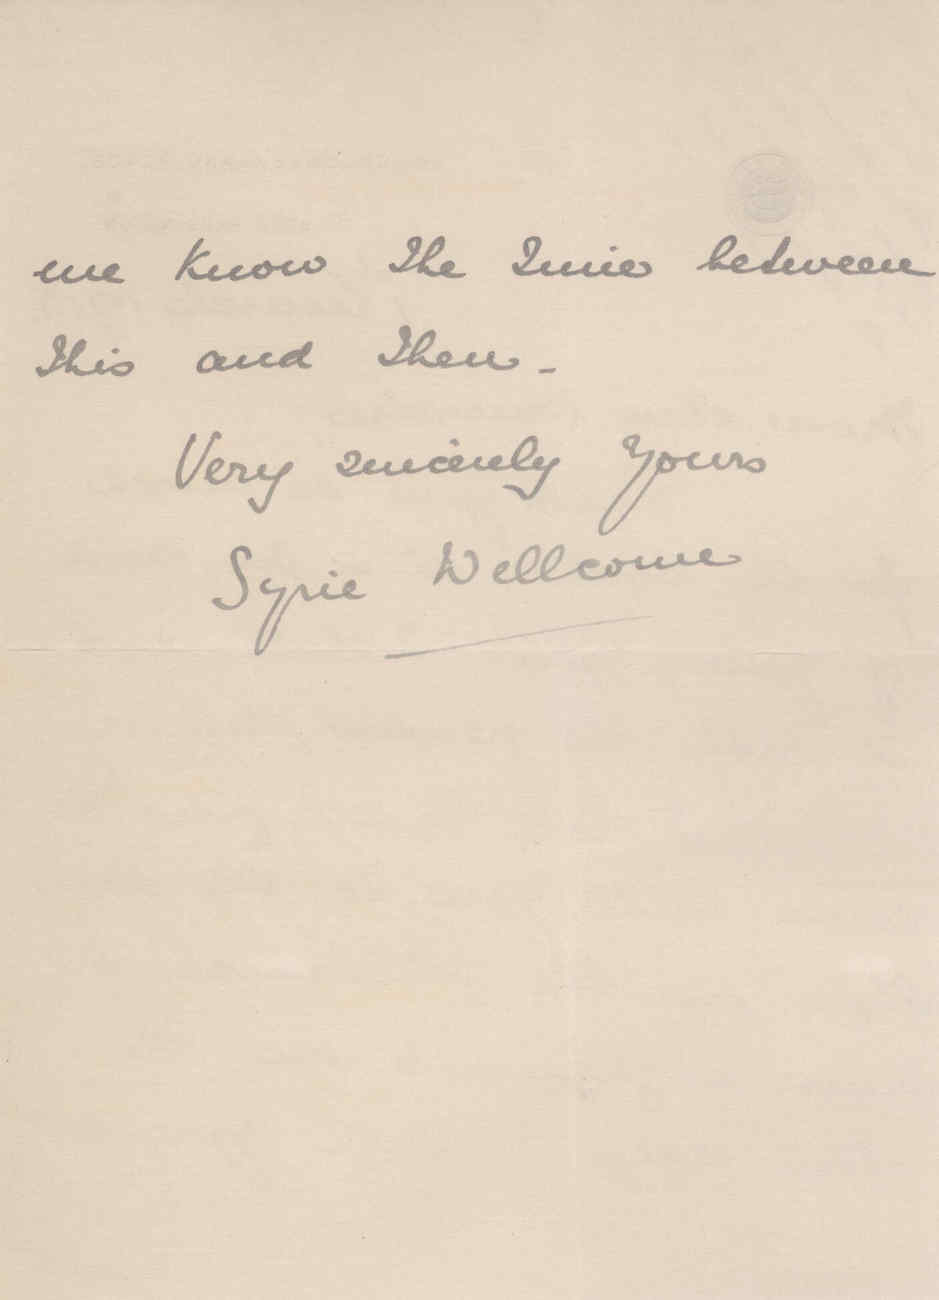 me know the time between
this and then.
Very sincerely yours
Syrie Wellcome